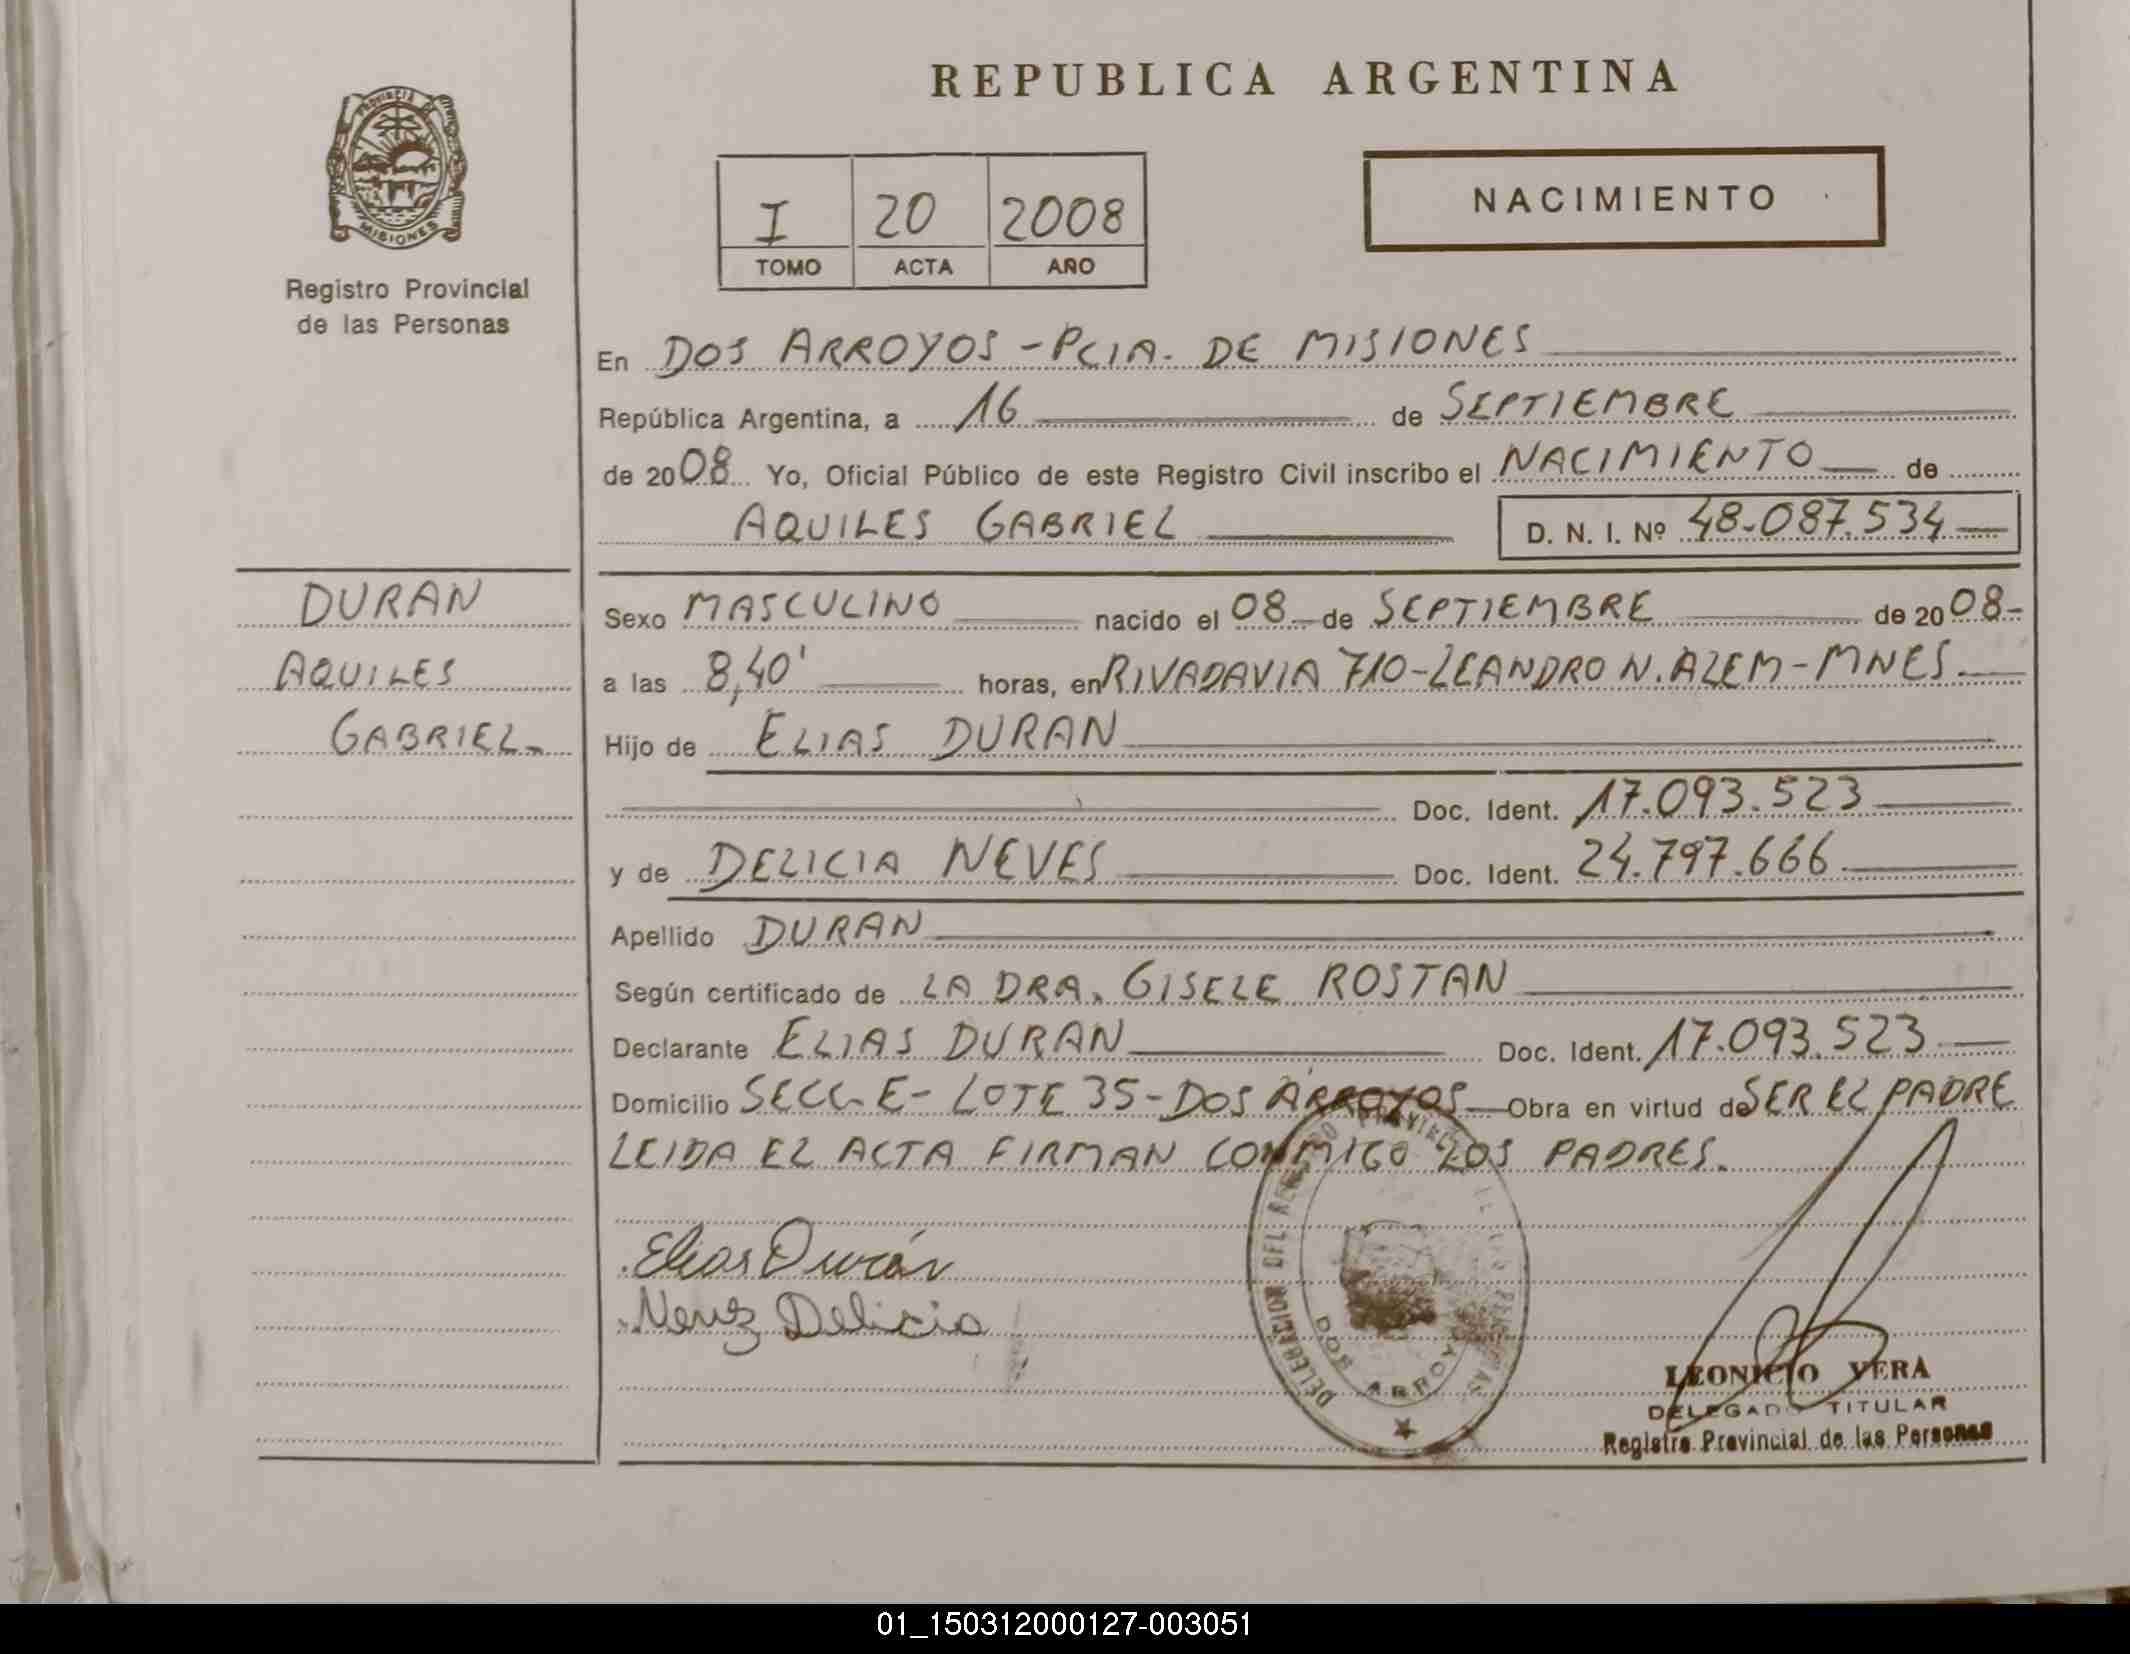 REPUBLICA ARGENTINA
PROVINCIA DE
MISIONES
Registro Provincial
de las Personas
I 20 2008
TOMO ACTA AÑO
NACIMIENTO
En DOS ARROYOS - PCIA. DE MISIONES
República Argentina, a 16 de SEPTIEMBRE
de 2008 Yo, Oficial Público de este Registro Civil inscribo el NACIMIENTO de
AQUILES GABRIEL D. N. I. Nº 48.087.534
DURAN
AQUILES
GABRIEL.
Sexo MASCULINO nacido el 08 de SEPTIEMBRE de 2008-
a las 8,40' horas, en RIVADAVIA 710-LEANDRO N. ALEM-MNES.
Hijo de ELIAS DURAN
Doc. Ident. 17.093.523
y de DELICIA NEVES Doc. Ident. 24.797.666
Apellido DURAN
Según certificado de LA DRA. GISELE ROSTAN
Declarante ELIAS DURAN Doc. Ident. 17.093.523
Domicilio SECC. E- LOTE 35-DOS ARROYOS Obra en virtud de SER EL PADRE
LEIDA EL ACTA FIRMAN CONMIGO LOS PADRES.
Elias Durán
Nevez Delicia
DELEGACION DEL REGISTRO PROVINCIAL DE LAS PERSONAS
DOS ARROYOS
LEONICIO VERA
DELEGADO TITULAR
Registro Provincial de las Personas
01_150312000127-003051